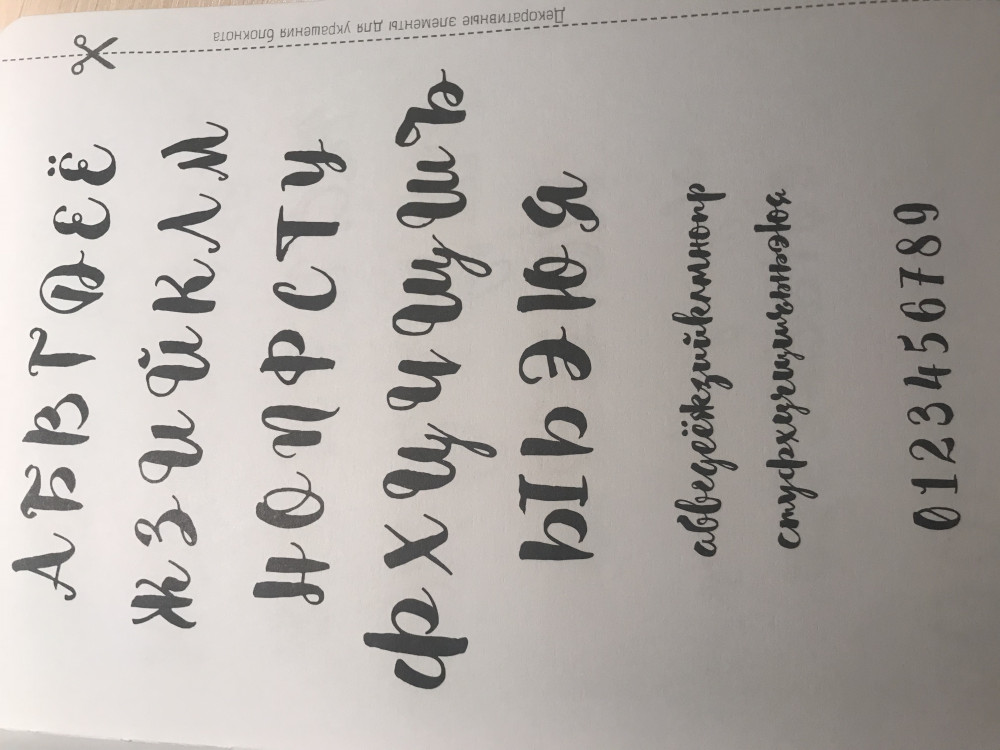 Декоративные элементы для украшения блокнота
А Б В Г Д Е Ё
Ж З И Й К Л М
Н О П Р С Т У
Ф Х Ц Ч Щ Ш Ъ
Ы Ь Э Ю Я
абвгдеёжзийклмнопр
стуфхцчшщъыьэюя
0123456789